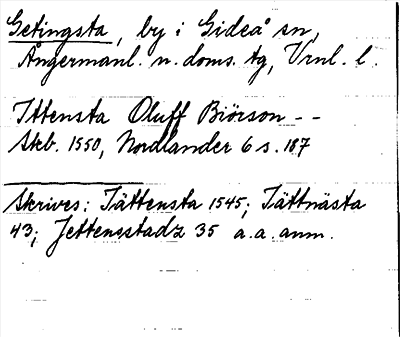 Getingsta, by i Gideå sn,
Ångermanl. n. doms. tg, Vrnl. l.
Ittensta Oluff Biörson - -
Skb. 1550, Nordlander 6 s. 187
Skrives: Jättensta 1545; Jättnästa
43; Jettenestadz 35 a.a. anm.